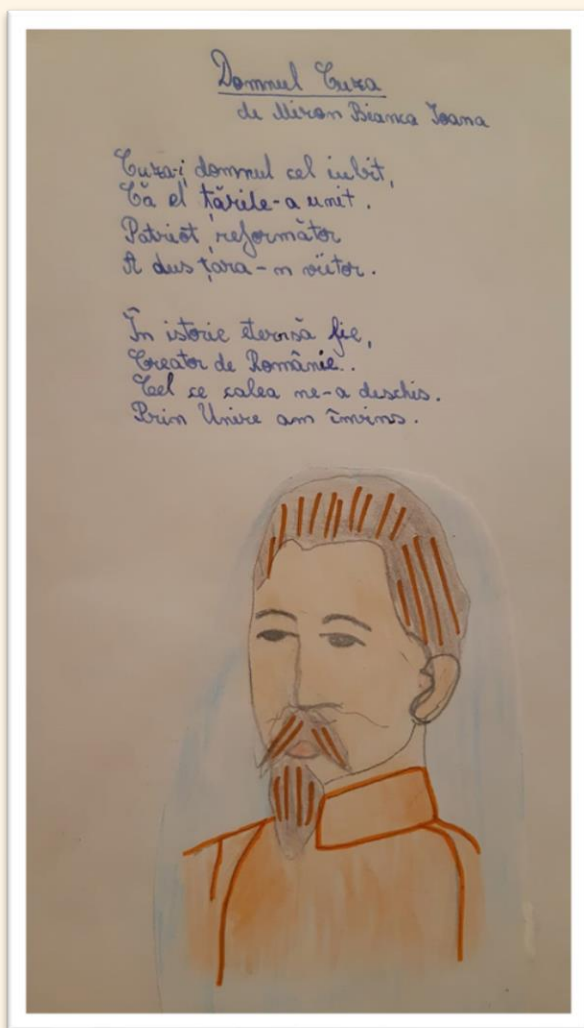 Domnul Cuza
de Miron Bianca Ioana
Cuza-i domnul cel iubit,
Că el țările-a unit.
Patriot, reformător
A dus țara-n viitor.
În istorie eternă fie,
Creator de Românie..
Cel ce calea ne-a deschis.
Prin Unire am învins.